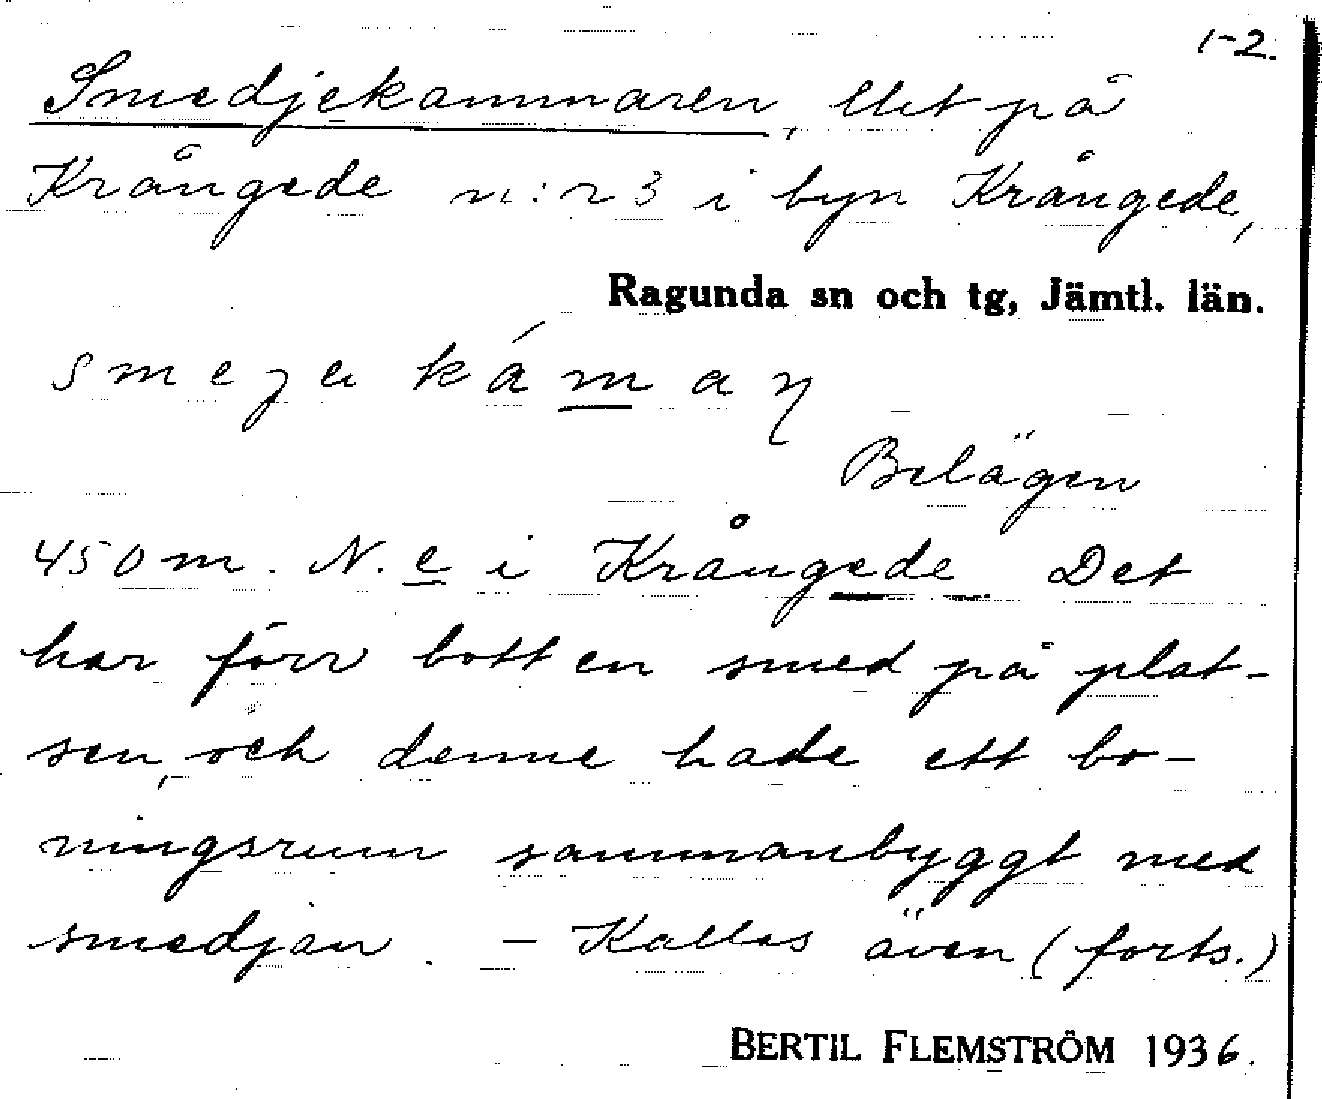 1-2.
Smedjekammaren, litet på
Krångede n:r 3 i byn Krångede,
Ragunda sn och tg, Jämtl. län.
Belägen
450 m. N. e i Krångede Det
har förr bott en smed på plat-
sen, och denne hade ett bo-
ningsrum sammanbyggt med
smedjan. – Kallas även (forts.)
BERTIL FLEMSTRÖM 1936.